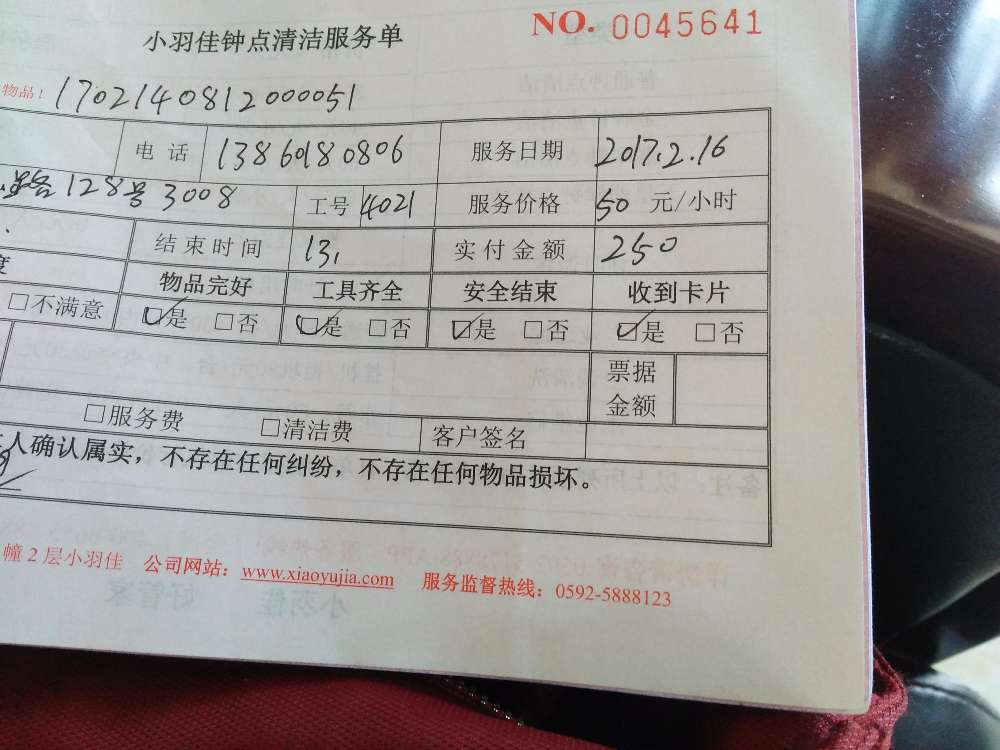 小羽佳钟点清洁服务单
NO. 0045641
物品！ 1702140812000051
电话 13860180806 服务日期 2017.2.16
路128号3008 工号 4021 服务价格 50 元/小时
结束时间 13, 实付金额 250
度 物品完好 工具齐全 安全结束 收到卡片
□不满意 ☑是 □否 ☑是 □否 ☑是 □否 ☑是 □否
票据
金额
□服务费 □清洁费 客户签名
人确认属实，不存在任何纠纷，不存在任何物品损坏。
幢2层小羽佳 公司网站：www.xiaoyujia.com 服务监督热线：0592-5888123